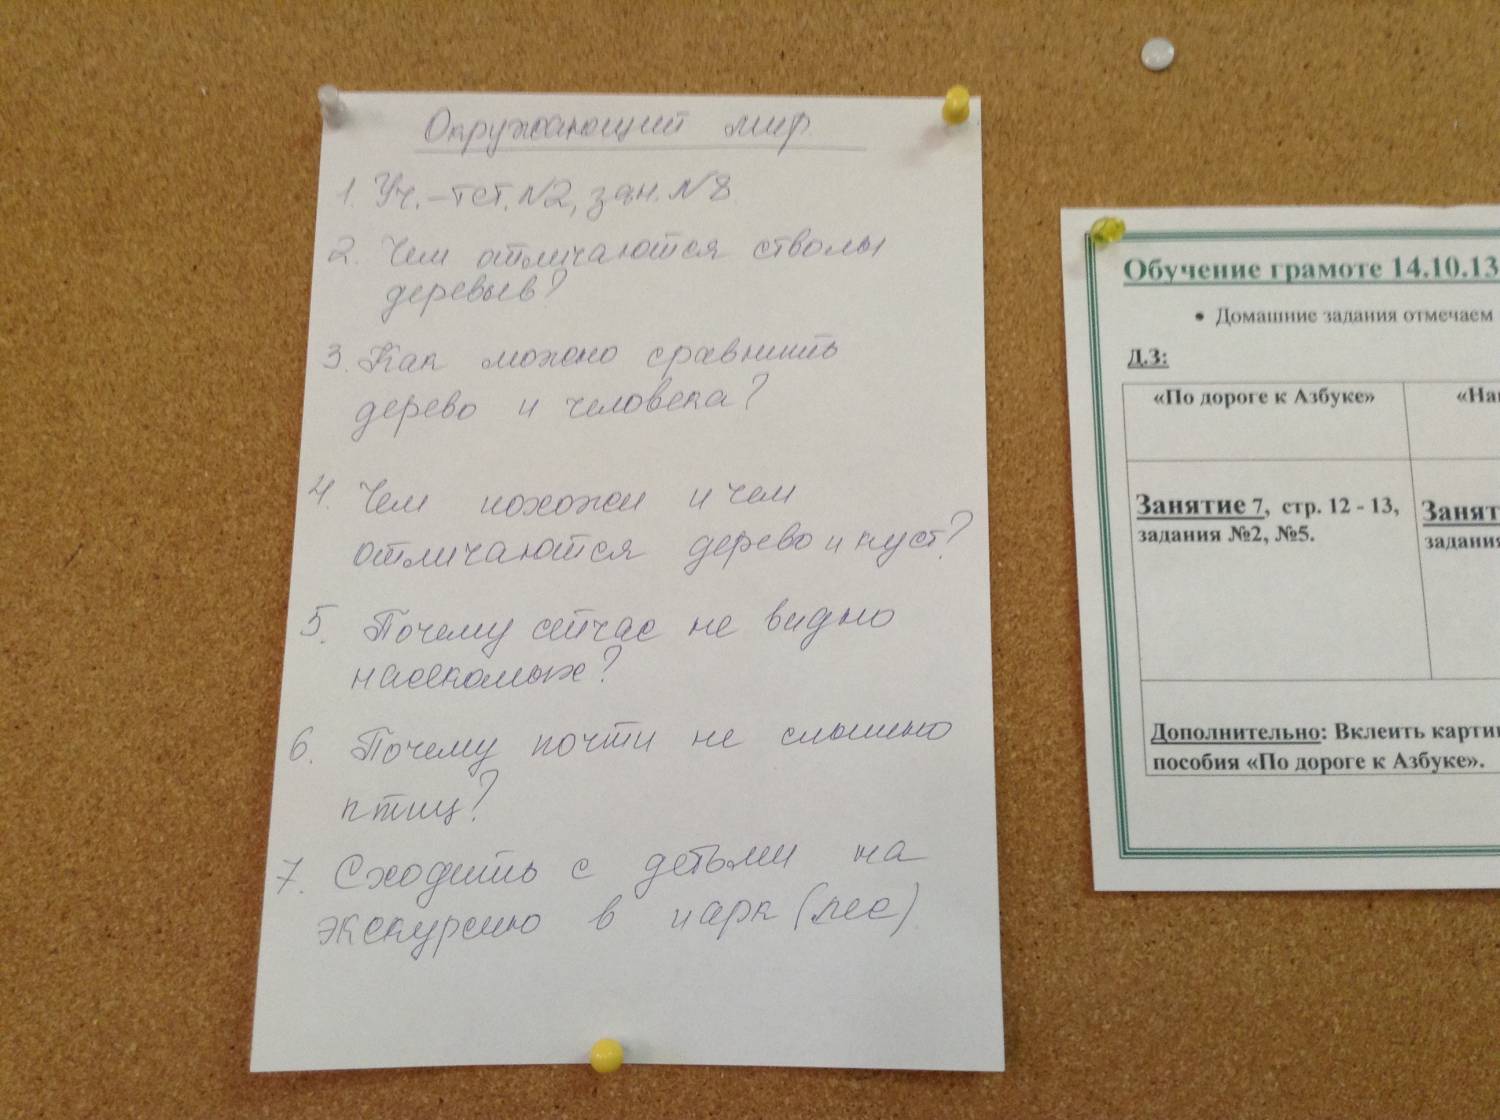 Окружающий мир
1. Уч.-тет. №2, зан. №8
2. Чем отличаются стволы
деревьев?
3. Как можно сравнить
дерево и человека?
4. Чем похожи и чем
отличаются дерево и куст?
5. Почему сейчас не видно
насекомых?
6. Почему почти не слышно
птиц?
7. Сходить с детьми на
экскурсию в парк (лес)
Обучение грамоте 14.10.13
• Домашние задания отмечаем
Д.З:
«По дороге к Азбуке» «На
Занятие 7, стр. 12 - 13, Занят
задания №2, №5. задания
Дополнительно: Вклеить карти
пособия «По дороге к Азбуке».